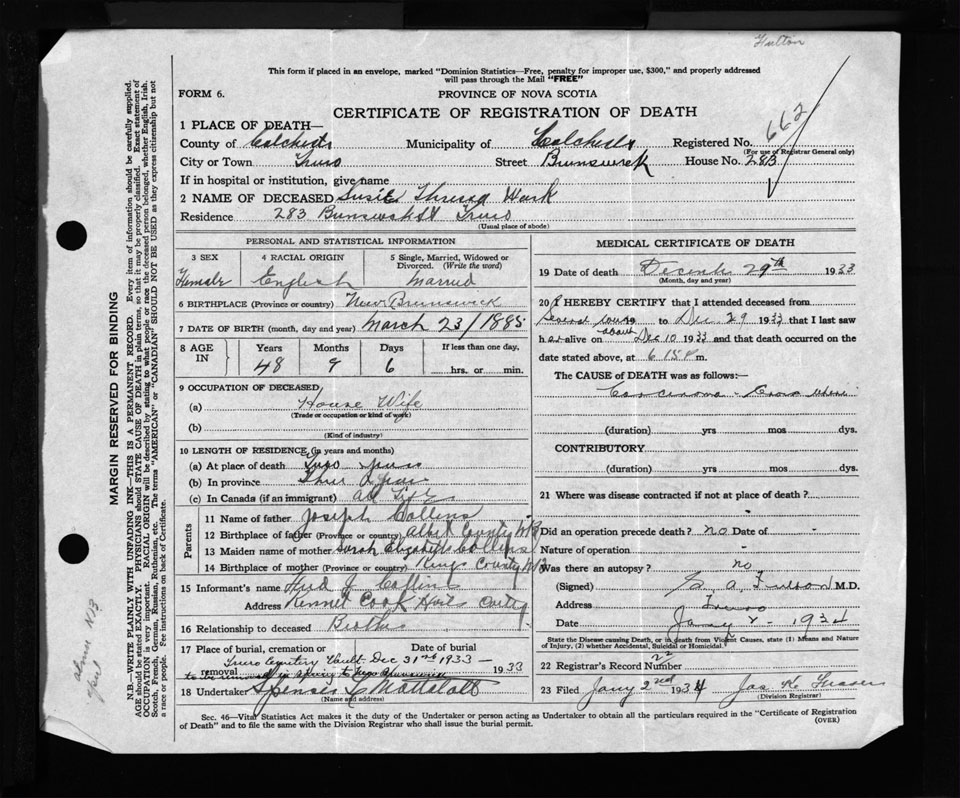 Fulton
This form if placed in an envelope, marked "Dominion Statistics—Free, penalty for improper use, $300," and properly addressed
will pass through the Mail "FREE"
FORM 6.
PROVINCE OF NOVA SCOTIA
CERTIFICATE OF REGISTRATION OF DEATH
662
1 PLACE OF DEATH—
County of Colchester Municipality of Colchester Registered No.
(For use of Registrar General only)
City or Town Truro Street Brunswick House No. 283
If in hospital or institution, give name
2 NAME OF DECEASED Susie Work
Residence 283 Brunswick St Truro
(Usual place of abode)
PERSONAL AND STATISTICAL INFORMATION
3 SEX
Female
4 RACIAL ORIGIN
English
5 Single, Married, Widowed or
Divorced. (Write the word)
Married
6 BIRTHPLACE (Province or country) New Brunswick
7 DATE OF BIRTH (month, day and year) March 23/1885
8 AGE IN
Years Months Days If less than one day.
48 9 6 hrs. or min.
9 OCCUPATION OF DECEASED
(a) House Wife
(Trade or occupation or kind of work)
(b)
(Kind of industry)
10 LENGTH OF RESIDENCE (in years and months)
(a) At place of death years
(b) In province years
(c) In Canada (if an immigrant) all life
Parents
11 Name of father Joseph Collins
12 Birthplace of father (Province or country) Albert County N B
13 Maiden name of mother Sarah Elizabeth Collins
14 Birthplace of mother (Province or country) Kings County N B
15 Informant's name Fred J Collins
Address Kennet Cook Hants County
16 Relationship to deceased Brother
17 Place of burial, cremation or Date of burial
removal Truro Cemetery Vault - Dec 31st 1933 - 1933
to be removed in Spring to New Brunswick
18 Undertaker Spencer & Mattatall
(Name and address)
MEDICAL CERTIFICATE OF DEATH
19 Date of death December 29th 1933
(Month, day and year)
20 I HEREBY CERTIFY that I attended deceased from
several to Dec 29 1933 that I last saw
her alive on about Dec 10 1933 and that death occurred on the
date stated above, at 6 15 P m.
The CAUSE of DEATH was as follows:—
Carcinoma
(duration) yrs mos dys.
CONTRIBUTORY
(duration) yrs mos dys.
21 Where was disease contracted if not at place of death?
Did an operation precede death? no Date of -
Nature of operation -
Was there an autopsy? no
(Signed) E. A. Fulton M.D.
Address Truro
Date Jany 2 - 1934
State the Disease causing Death, or in death from Violent Causes, state (1) Means and Nature
of Injury, (2) whether Accidental, Suicidal or Homicidal.
22 Registrar's Record Number 22
23 Filed Jany 2nd 1934 Jas K Fraser
(Division Registrar)
Sec. 46—Vital Statistics Act makes it the duty of the Undertaker or person acting as Undertaker to obtain all the particulars required in the "Certificate of Registration
of Death" and to file the same with the Division Registrar who shall issue the burial permit.
(OVER)
MARGIN RESERVED FOR BINDING
N.B.—WRITE PLAINLY WITH UNFADING INK—THIS IS A PERMANENT RECORD. Every item of information should be carefully supplied.
AGE should be stated EXACTLY. PHYSICIANS should STATE CAUSE OF DEATH in plain terms, so that it may be properly classified. Exact statement of
OCCUPATION is very important. RACIAL ORIGIN will be described by stating to what people or race the deceased person belonged, whether English, Irish,
Scotch, French, German, Russian, Ruthenian, etc. The terms "AMERICAN" or "CANADIAN" SHOULD NOT BE USED as they express citizenship but not
a race or people. See instructions on back of Certificate.